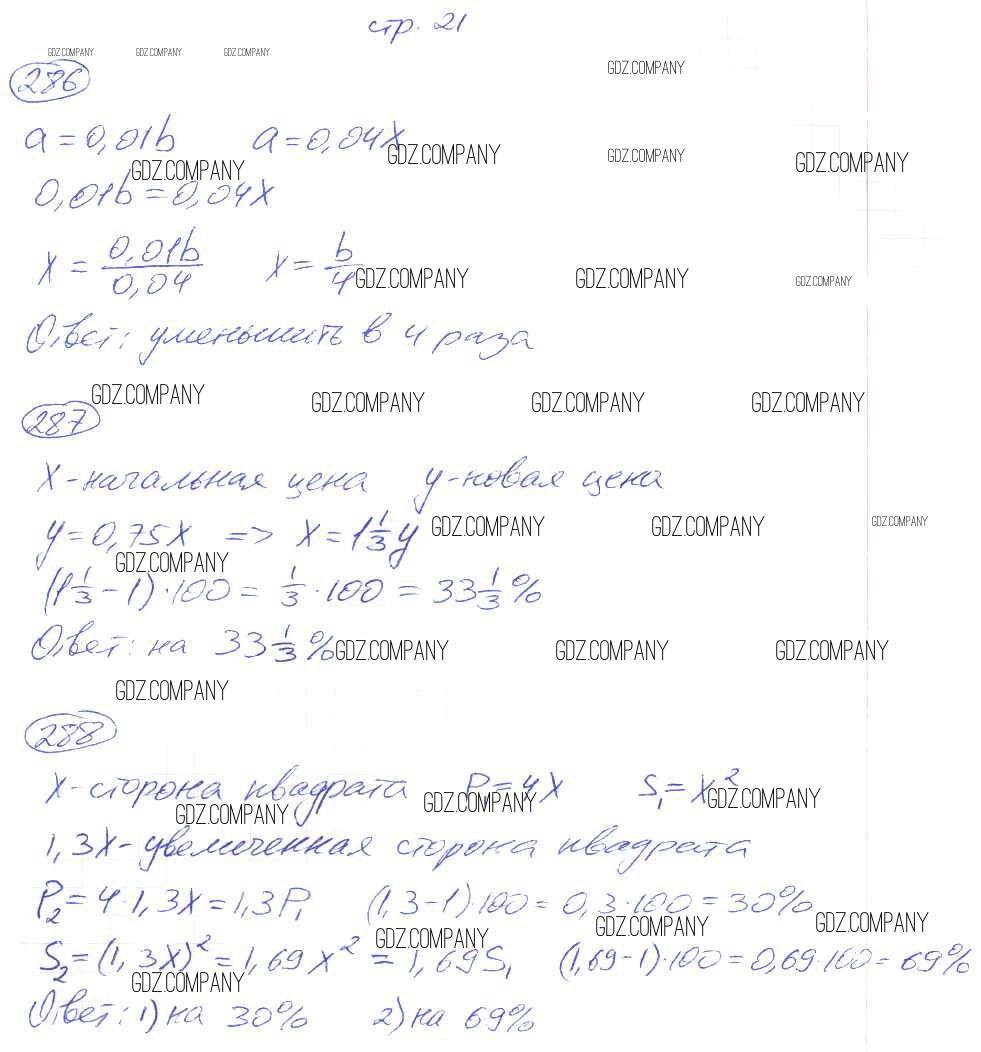 стр. 21
GDZ.COMPANY GDZ.COMPANY GDZ.COMPANY
GDZ.COMPANY
286
a = 0,01b a = 0,04x
GDZ.COMPANY GDZ.COMPANY GDZ.COMPANY GDZ.COMPANY
0,01b = 0,04x
x = 0,01b/0,04 x = b/4
GDZ.COMPANY GDZ.COMPANY GDZ.COMPANY
Ответ: уменьшить в 4 раза
GDZ.COMPANY GDZ.COMPANY GDZ.COMPANY GDZ.COMPANY
287
x - начальная цена y - новая цена
y = 0,75x => x = 1 1/3 y
GDZ.COMPANY GDZ.COMPANY GDZ.COMPANY
GDZ.COMPANY
(1 1/3 - 1) · 100 = 1/3 · 100 = 33 1/3 %
Ответ: на 33 1/3 %
GDZ.COMPANY GDZ.COMPANY GDZ.COMPANY
GDZ.COMPANY
288
x - сторона квадрата P₁ = 4x S₁ = x²
GDZ.COMPANY GDZ.COMPANY GDZ.COMPANY
1,3x - увеличенная сторона квадрата
P₂ = 4 · 1,3x = 1,3P₁ (1,3 - 1) · 100 = 0,3 · 100 = 30%
GDZ.COMPANY GDZ.COMPANY GDZ.COMPANY
S₂ = (1,3x)² = 1,69x² = 1,69S₁ (1,69 - 1) · 100 = 0,69 · 100 = 69%
GDZ.COMPANY
Ответ: 1) на 30% 2) на 69%